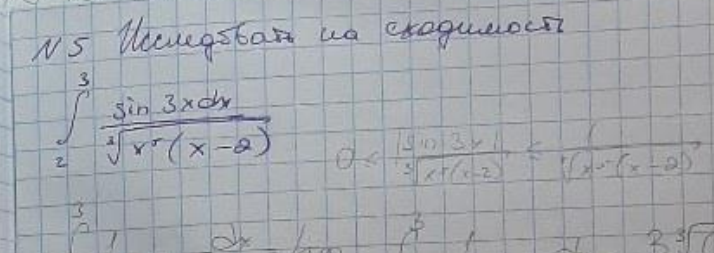 N5 Исследовать на сходимость
∫₂³ sin 3x dx / ∛(x⁵(x-2))
0 ≤ |sin 3x| / ∛(x⁵(x-2)) ≤ 1 / ∛(x⁵(x-2))